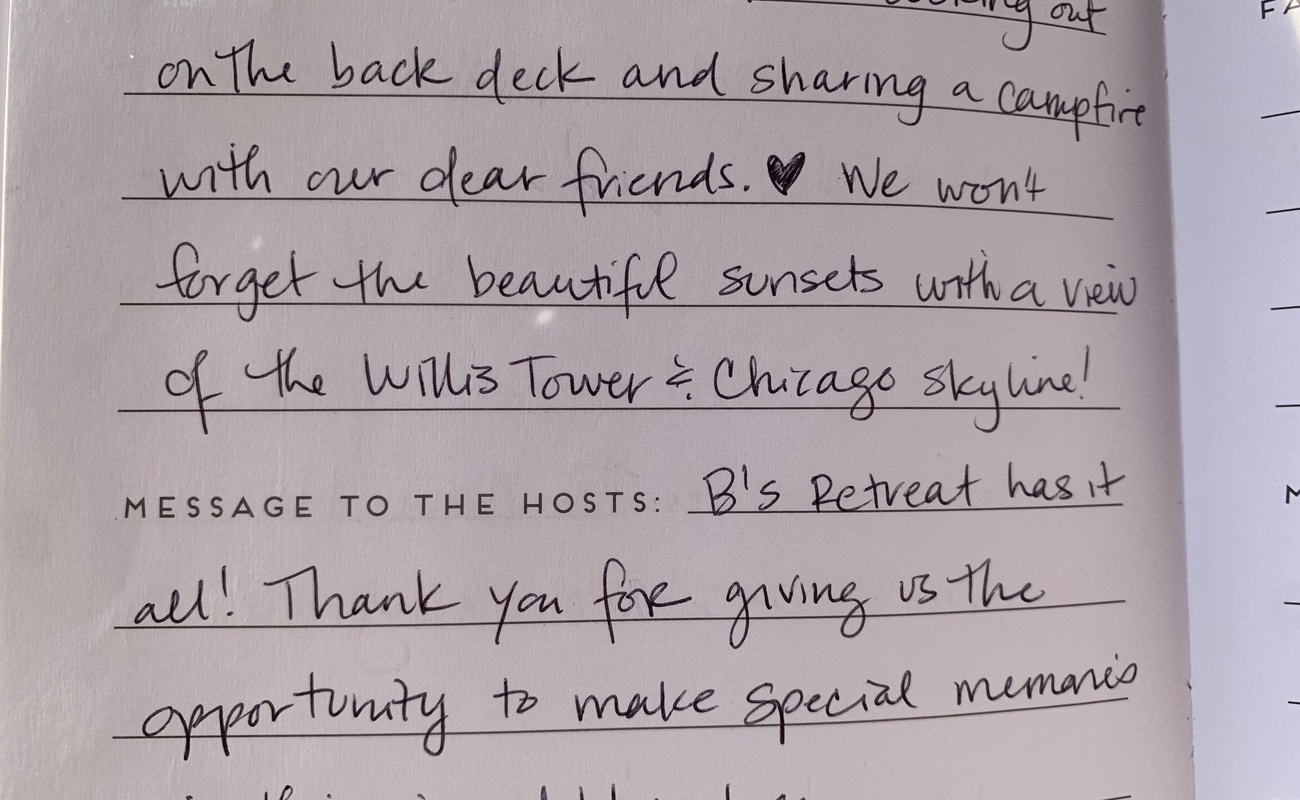 out
on the back deck and sharing a campfire
with our dear friends. ♥ We won't
forget the beautiful sunsets with a view
of the Willis Tower & Chicago skyline!
MESSAGE TO THE HOSTS: B's Retreat has it
all! Thank you for giving us the
opportunity to make special memories